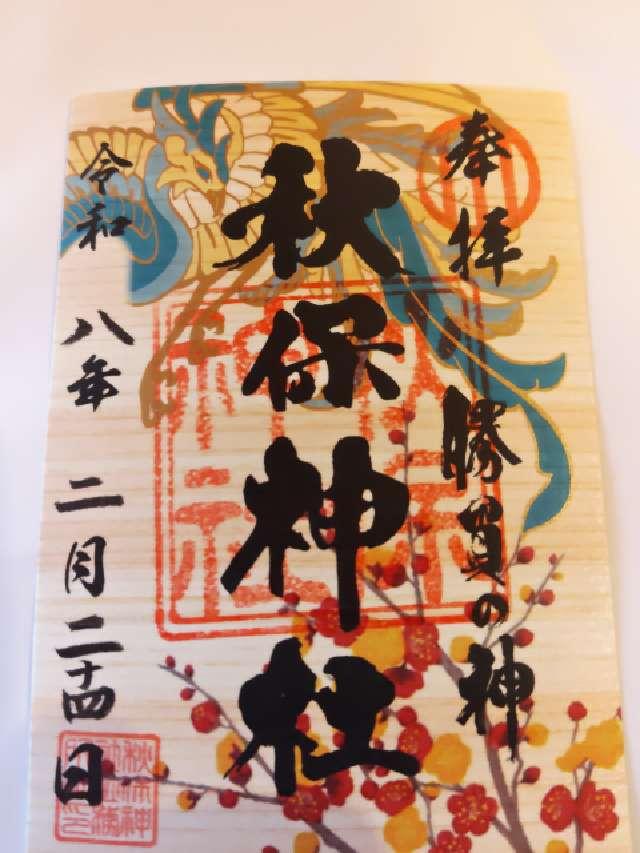 奉拝
勝負の神
秋保神社
令和八年二月二十四日